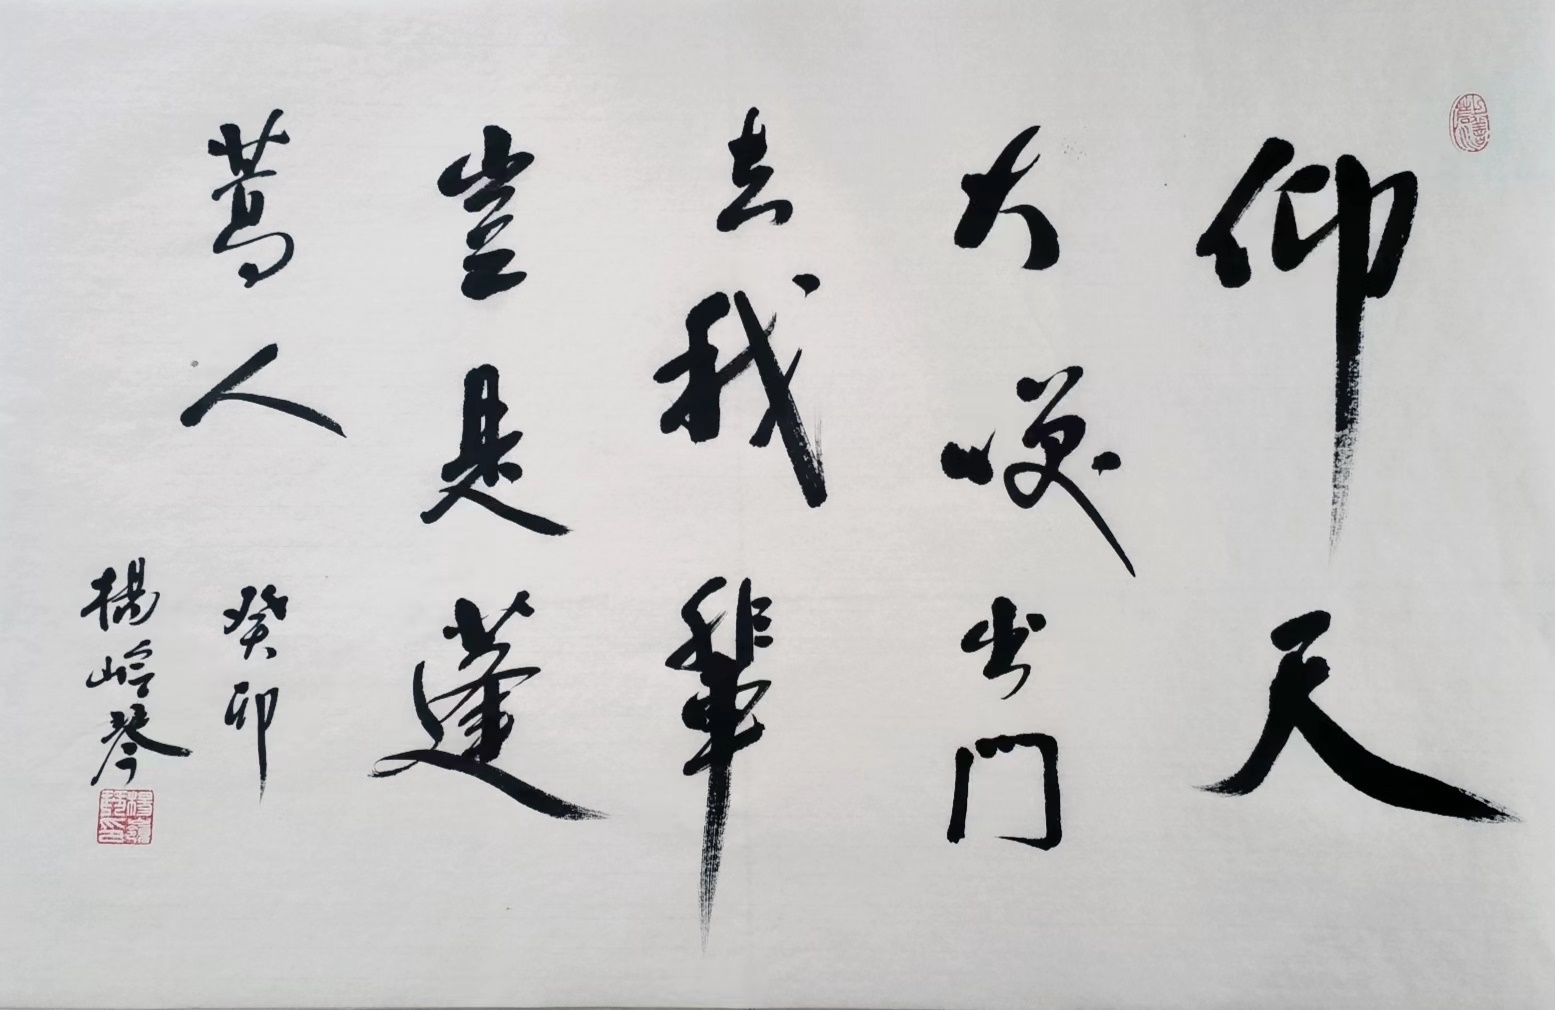 仰天
大咲出門
去我輩
豈是蓬
蒿人
癸卯
楊岭琴